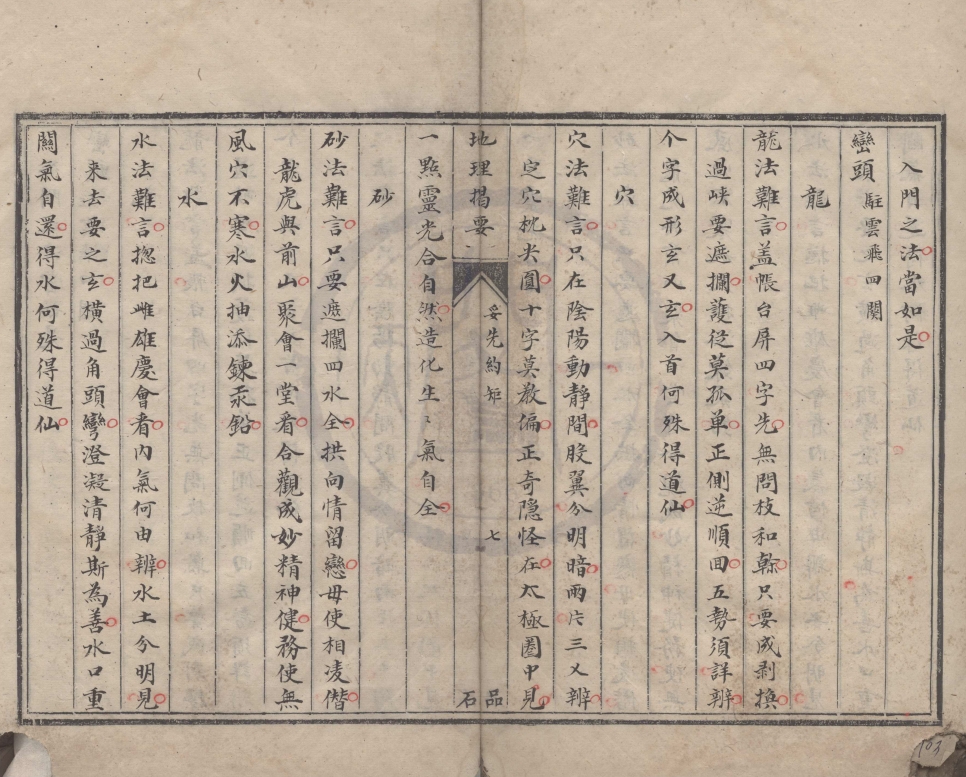 入門之法當如是
巒頭 駐雲飛四闋
龍
龍法難言盖帳台屏四字先無問枝和榦只要成剥換
過峡要遮攔護從莫孤單正側逆順回五勢須詳辨
个字成形玄又玄入首何殊得道仙
穴
穴法難言只在陰陽動静間股翼分明暗兩片三乂辨
㝎穴枕尖圓十字莫教偏正奇隐怪在太極圈中見
地理揭要 妥先約矩 七 石品
一㸃靈光合自然造化生〻氣自全
砂
砂法難言只要遮攔四水全拱向情留戀毋使相凌僭
龍虎與前山聚會一堂看合觀成妙精神健務使無
風穴不寒水火抽添鍊汞鉛
水
水法難言揔把雌雄慶會看内氣何由辨水土分明見
来去要之玄横過角頭彎澄凝清静斯為善水口重
關氣自還得水何殊得道仙
103